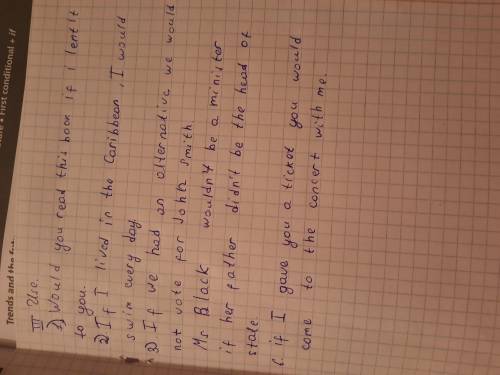 Trends and the
First conditional + if
III Use.
1) Would you read this book if I lent it
to you.
2) If I lived in the Caribbean, I would
swim every day
3) If we had an alternative we would
not vote for John Smith
Ms Black wouldn't be a minister
if her father didn't be the head of
state.
if I gave you a ticket you would
come to the concert with me.